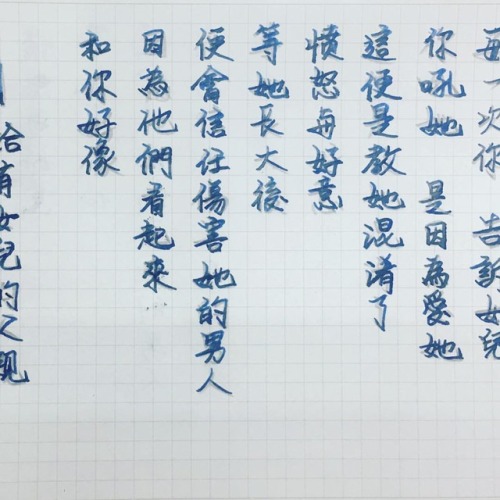 每一次你 告訴女兒
你吼她 是因為愛她
這便是教她混淆了
憤怒與好意
等她長大後
便會信任傷害她的男人
因為他們看起來
和你好像
給有女兒的父親